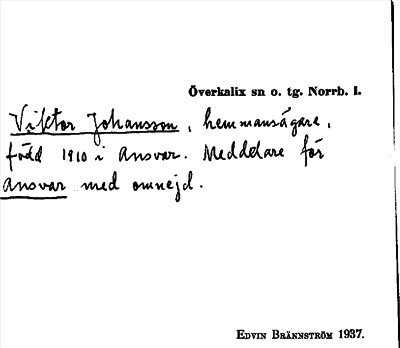 Överkalix sn o. tg. Norrb. l.
Viktor Johansson, hemmansägare,
född 1910 i Ansvar. Meddelare för
Ansvar med omnejd.
EDVIN BRÄNNSTRÖM 1937.